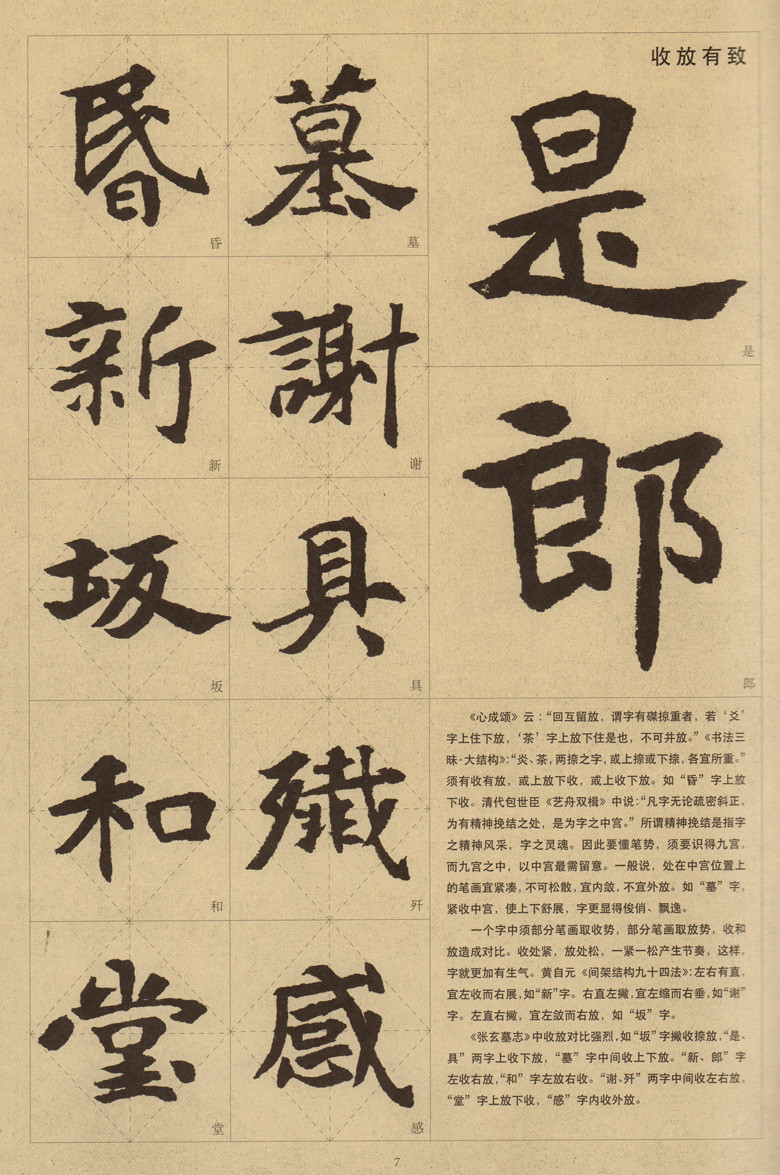 收放有致
是
是
郎
郎
墓
墓
謝
谢
具
具
殱
歼
感
感
昏
昏
新
新
坂
坂
和
和
堂
堂
《心成颂》云：“回互留放，谓字有磔掠重者，若‘爻’
字上住下放，‘茶’字上放下住是也，不可并放。”《书法三
昧·大结构》：“炎、茶，两捺之字，或上捺或下捺，各宜所重。”
须有收有放，或上放下收，或上收下放。如“昏”字上放
下收。清代包世臣《艺舟双楫》中说：“凡字无论疏密斜正，
为有精神挽结之处，是为字之中宫。”所谓精神挽结是指字
之精神风采，字之灵魂。因此要懂笔势，须要识得九宫，
而九宫之中，以中宫最需留意。一般说，处在中宫位置上
的笔画宜紧凑，不可松散，宜内敛，不宜外放。如“墓”字，
紧收中宫，使上下舒展，字更显得俊俏、飘逸。
一个字中须部分笔画取收势，部分笔画取放势，收和
放造成对比。收处紧，放处松，一紧一松产生节奏，这样，
字就更加有生气。黄自元《间架结构九十四法》：左右有直，
宜左收而右展，如“新”字。右直左撇，宜左缩而右垂，如“谢”
字。左直右撇，宜左敛而右放，如“坂”字。
《张玄墓志》中收放对比强烈，如“坂”字撇收捺放，“是、
具”两字上收下放，“墓”字中间收上下放。“新、郎”字
左收右放，“和”字左放右收。“谢、歼”两字中间收左右放，
“堂”字上放下收，“感”字内收外放。
7